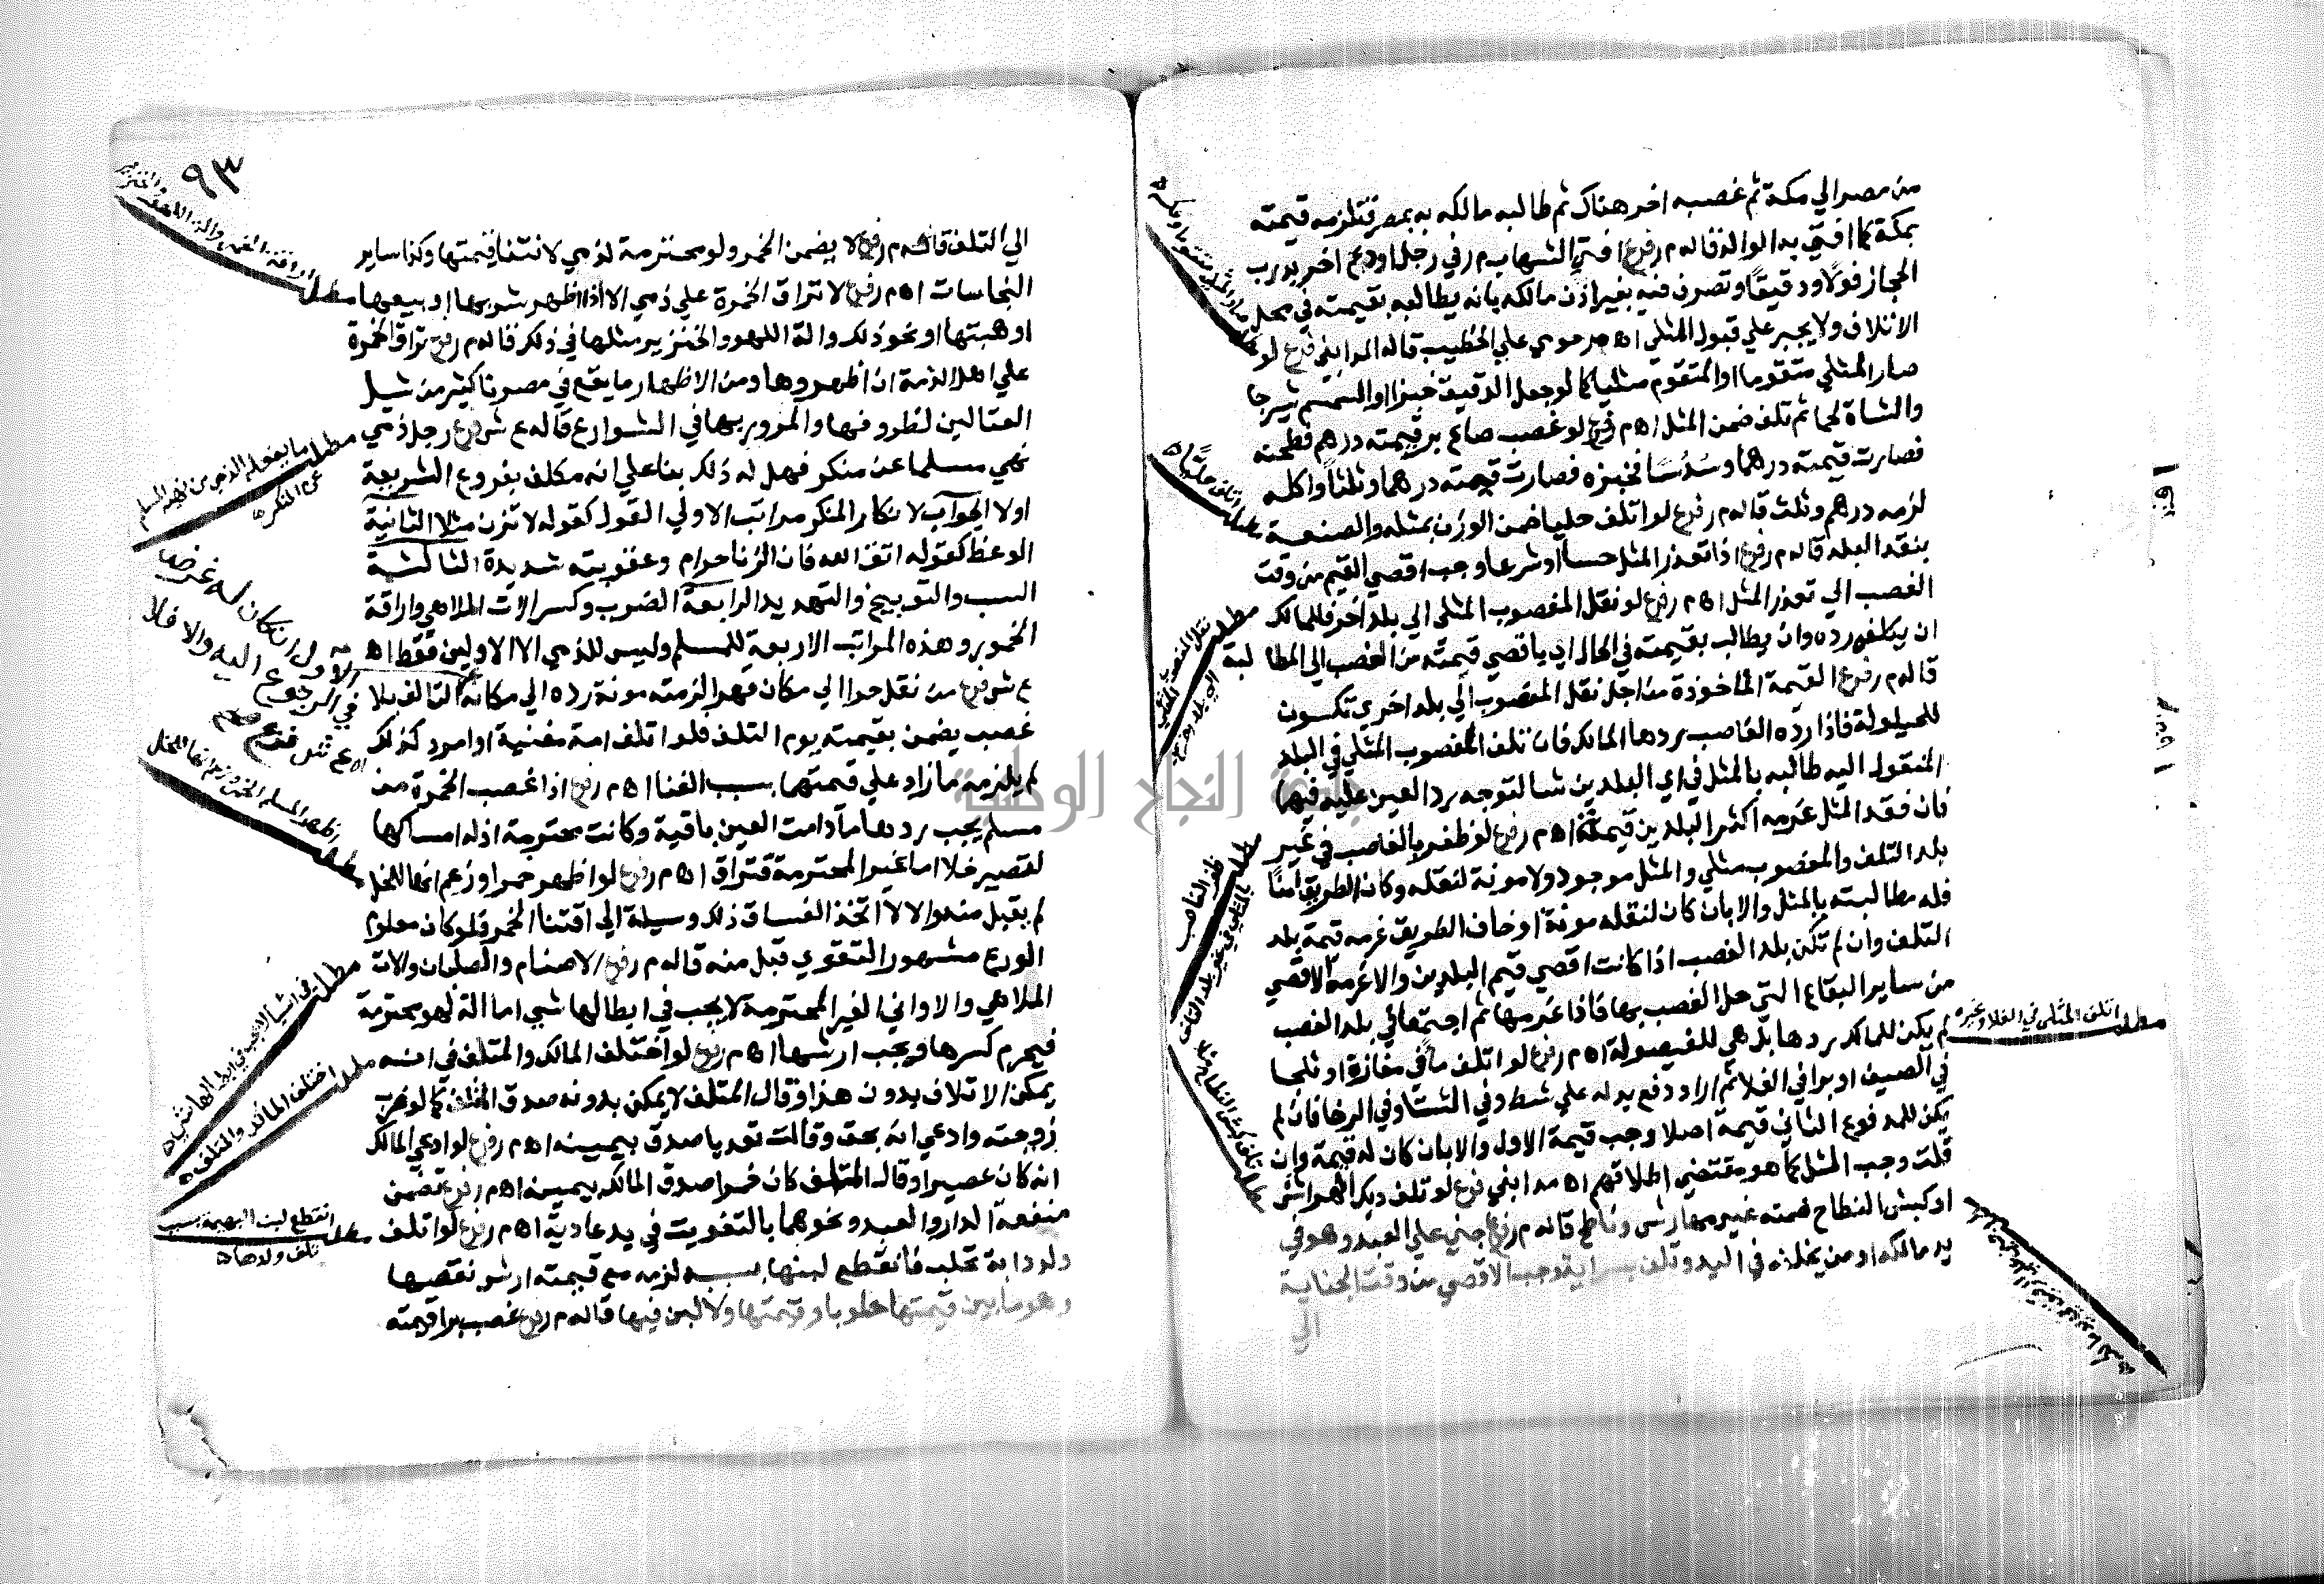 من مصر الي مكة ثم غصبه اخر هناك ثم طالبه مالكه به بمصر فتلزمه قيمته
بمكة كما افتي به الوالد قاله م ر فرع افتي الشهاب م ر في رجل اودع اخر بدرب
الحجاز فولا ودقيقا وتصرف فيه بغير اذن مالكه بانه يطالبه بقيمته في محل
الاتلاف ولا يجبر علي قبول المثلي اه مرحومي علي الخطيب قاله المدابغي فرع لو
صار المثلي متقوما او المتقوم مثليا كما لو جعل الدقيق خبزا او السمسم شيرجا
والشاة لحما ثم تلف ضمن المثل اه م ر فرع لو غصب صاع بر قيمته درهم فطحنه
فصارت قيمته درهما وسدسا فخبزه فصارت قيمته درهما وثلثا واكله
لزمه درهم وثلث قاله م ر فرع لو اتلف حليا ضمن الوزن بمثله والصنعة
بنقد البلد قاله م ر فرع اذا تعذر المثل حسا او شرعا وجب اقصي القيم من وقت
الغصب الي تعذر المثل اه م ر فرع لو نقل المغصوب المثلي الي بلد اخر فللمالك
ان يكلفه رده وان يطالب بقيمته في الحال اي باقصي قيمته من الغصب الي المطالبة
قاله م ر فرع القيمة الماخوذة من اجل نقل المغصوب الي بلد اخري تكون
للحيلولة فاذا رده الغاصب ردها المالك فان تلف المغصوب المثلي في البلد
المنقول اليه طالبه بالمثل في اي البلدين شا لتوجه رد العين عليه فيها
فان فقد المثل غرمه اكثر البلدين قيمة اه م ر فرع لو ظفر بالغاصب في غير
بلد التلف والمغصوب مثلي والمثل موجود ولا مونة لنقله وكان الطريق امنا
فله مطالبته بالمثل والا بان كان لنقله مونة او خاف الطريق غرمه قيمة بلد
التلف وان لم تكن بلد الغصب اذا كانت اقصي قيم البلدين والا غرمه الاقصي
من ساير البقاع التي حل الغصب بها فاذا غرمها ثم اجتمعا في بلد الغصب
لم يكن للمالك ردها بل هي للفيصولة اه م ر فرع لو اتلف ما في مفازة او ثلجا
في الصيف او بردا في الفلا ثم اراد دفع بدله علي شط وفي الشتا وفي الرخا فان لم
يكن للمدفوع الثاني قيمة اصلا وجب قيمة الاول والا بان كان له قيمة وان
قلت وجب المثل كما هو مقتضي اطلاقهم اه مدابغي فرع لو تلف ديك الهراش
او كبش النطاح ضمنه غير مهارش وناطح قاله م ر فرع جني علي العبد وهو في
يد مالكه او من يخلفه في اليد وتلف بسراية وجب الاقصي من وقت الجناية
الي
مطلب نقل المغصوب المثلي
الي بلد اخري
مطلب ظفر الغاصب
بالمثلي في غير بلد التلف
مطلب اتلف المثلي في الفلا وغيره
٩٣
الي التلف قاله م ر فرع لا يضمن الخمر ولو محترمة لذمي لانتفا قيمتها وكذا ساير
النجاسات اه م ر فرع لا تراق الخمرة علي ذمي الا اذا اظهر شربها او بيعها
او هبتها او نحو ذلك والة اللهو والخنزير مثلها في ذلك قاله م ر فرع تراق الخمرة
علي اهل الذمة ان اظهروها ومن الاظهار ما يقع في مصرنا كثير من شيل
العتالين لظروفها والمرور بها في الشوارع قاله ع ش فرع رجل ذمي
نهي مسلما عن منكر فهل له ذلك بنا علي انه مكلف بفروع الشريعة
اولا الجواب لانكار المنكر مراتب الاولي القول كقوله لا تزن مثلا الثانية
الوعظ كقوله اتق الله فان الزنا حرام وعقوبته شديدة الثالثة
السب والتوبيخ والتهديد الرابعة الضرب وكسر الات الملاهي واراقة
الخمور وهذه المراتب الاربعة للمسلم وليس للذمي الا الاولين فقط اه
ع ش فرع من نقل حرا الي مكان قهرا لزمته مونة رده الي مكانه التالف بلا
غصب يضمن بقيمته يوم التلف فلو اتلف امة مغنية او امرد كذلك
لم يلزمه ما زاد علي قيمتها بسبب الغنا اه م ر فرع اذا غصب الخمرة من
مسلم يجب ردها ما دامت العين باقية وكانت محترمة اذ له امساكها
لتصير خلا اما غير المحترمة فتراق اه م ر فرع لو اظهر خمرا وزعم انها للخل
لم يقبل منه والا لاتخذ الفساق ذلك وسيلة الي اقتنا الخمر فلو كان معلوم
الورع مشهور التقوي قبل منه قاله م ر فرع الاصنام والصلبان والات
الملاهي والاواني الغير المحترمة لا يجب في ابطالها شي اما الة لهو محترمة
فيحرم كسرها ويجب ارشها اه م ر فرع لو اختلف المالك والمتلف في انه
يمكن الاتلاف بدون هذا وقال المتلف لا يمكن بدونه صدق المتلف كما لو ضرب
زوجته وادعي انه بحق وقالت تعديا صدق بيمينه اه م ر فرع لو ادعي المالك
انه كان عصيرا وقال المتلف كان خمرا صدق المالك بيمينه اه م ر فرع تضمن
منفعة الدار والعبد ونحوهما بالتفويت في يد عادية اه م ر فرع لو اتلف
ولد دابة تحلب فانقطع لبنها بسببه لزمه مع قيمته ارش نقصها
وهو ما بين قيمتها حلوبا وقيمتها ولا لبن فيها قاله م ر فرع غصب برا قيمته
مطلب ما يفعله الذمي من نهيه المسلم
عن المنكر
الاول ان كان له غرض
في الرجوع اليه والا فلا
اه ع ش فرع
مطلب اظهر المسلم الخمر وزعم انها للخل
مطلب في اشيا لا يجب في ابطالها شي
مطلب اختلف المالك والمتلف
مطلب انقطع لبن البهيمة بسبب
تلف ولدها
جامعة النجاح الوطنية